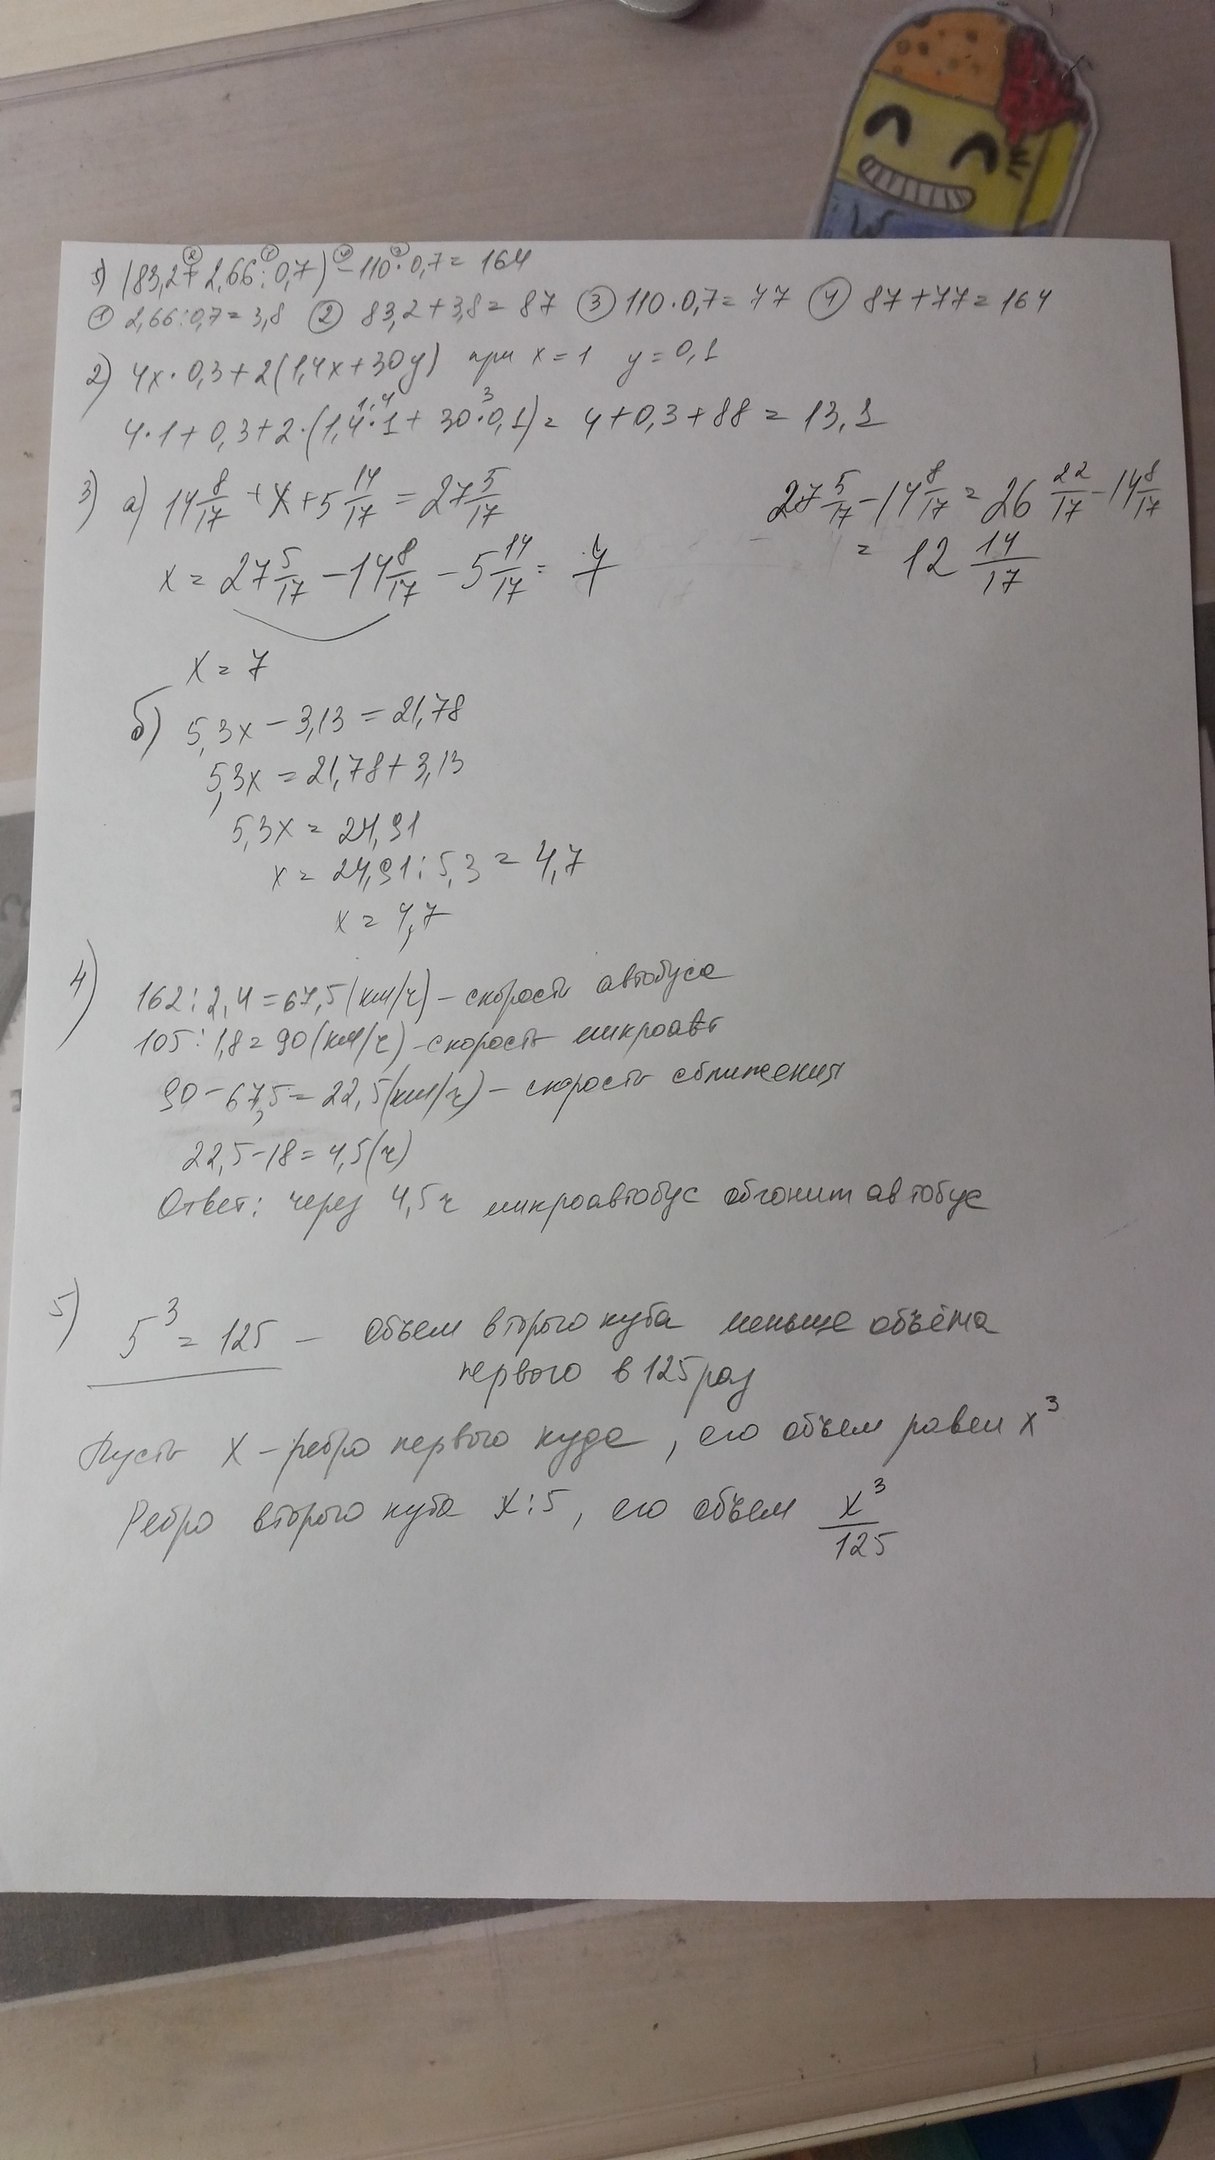 1) (83,2+2,66:0,7)-110·0,7=164
① 2,66:0,7=3,8 ② 83,2+3,8=87 ③ 110·0,7=77 ④ 87+77=164
2) 4x·0,3+2(1,4x+30y) при x=1 y=0,1
4·1+0,3+2·(1,4·1+30·0,1)= 4+0,3+88=13,1
3) а) 14 8/17 +x+5 14/17=27 5/17
27 5/17-14 8/17=26 22/17-14 8/17
= 12 14/17
x=27 5/17-14 8/17-5 14/17=7
x=7
б) 5,3x-3,13=21,78
5,3x=21,78+3,13
5,3x=24,91
x=24,91:5,3=4,7
x=4,7
4) 162:2,4=67,5(км/ч)-скорость автобуса
105:1,8=90(км/ч)-скорость микроавт
90-67,5=22,5(км/ч)-скорость сближения
22,5-18=4,5(ч)
Ответ: через 4,5ч микроавтобус обгонит автобус
5) 5³=125 - объем второго куба меньше объёма
первого в 125 раз
Пусть x-ребро первого куда, его объем равен x³
Ребро второго куба x:5, его объем x³/125